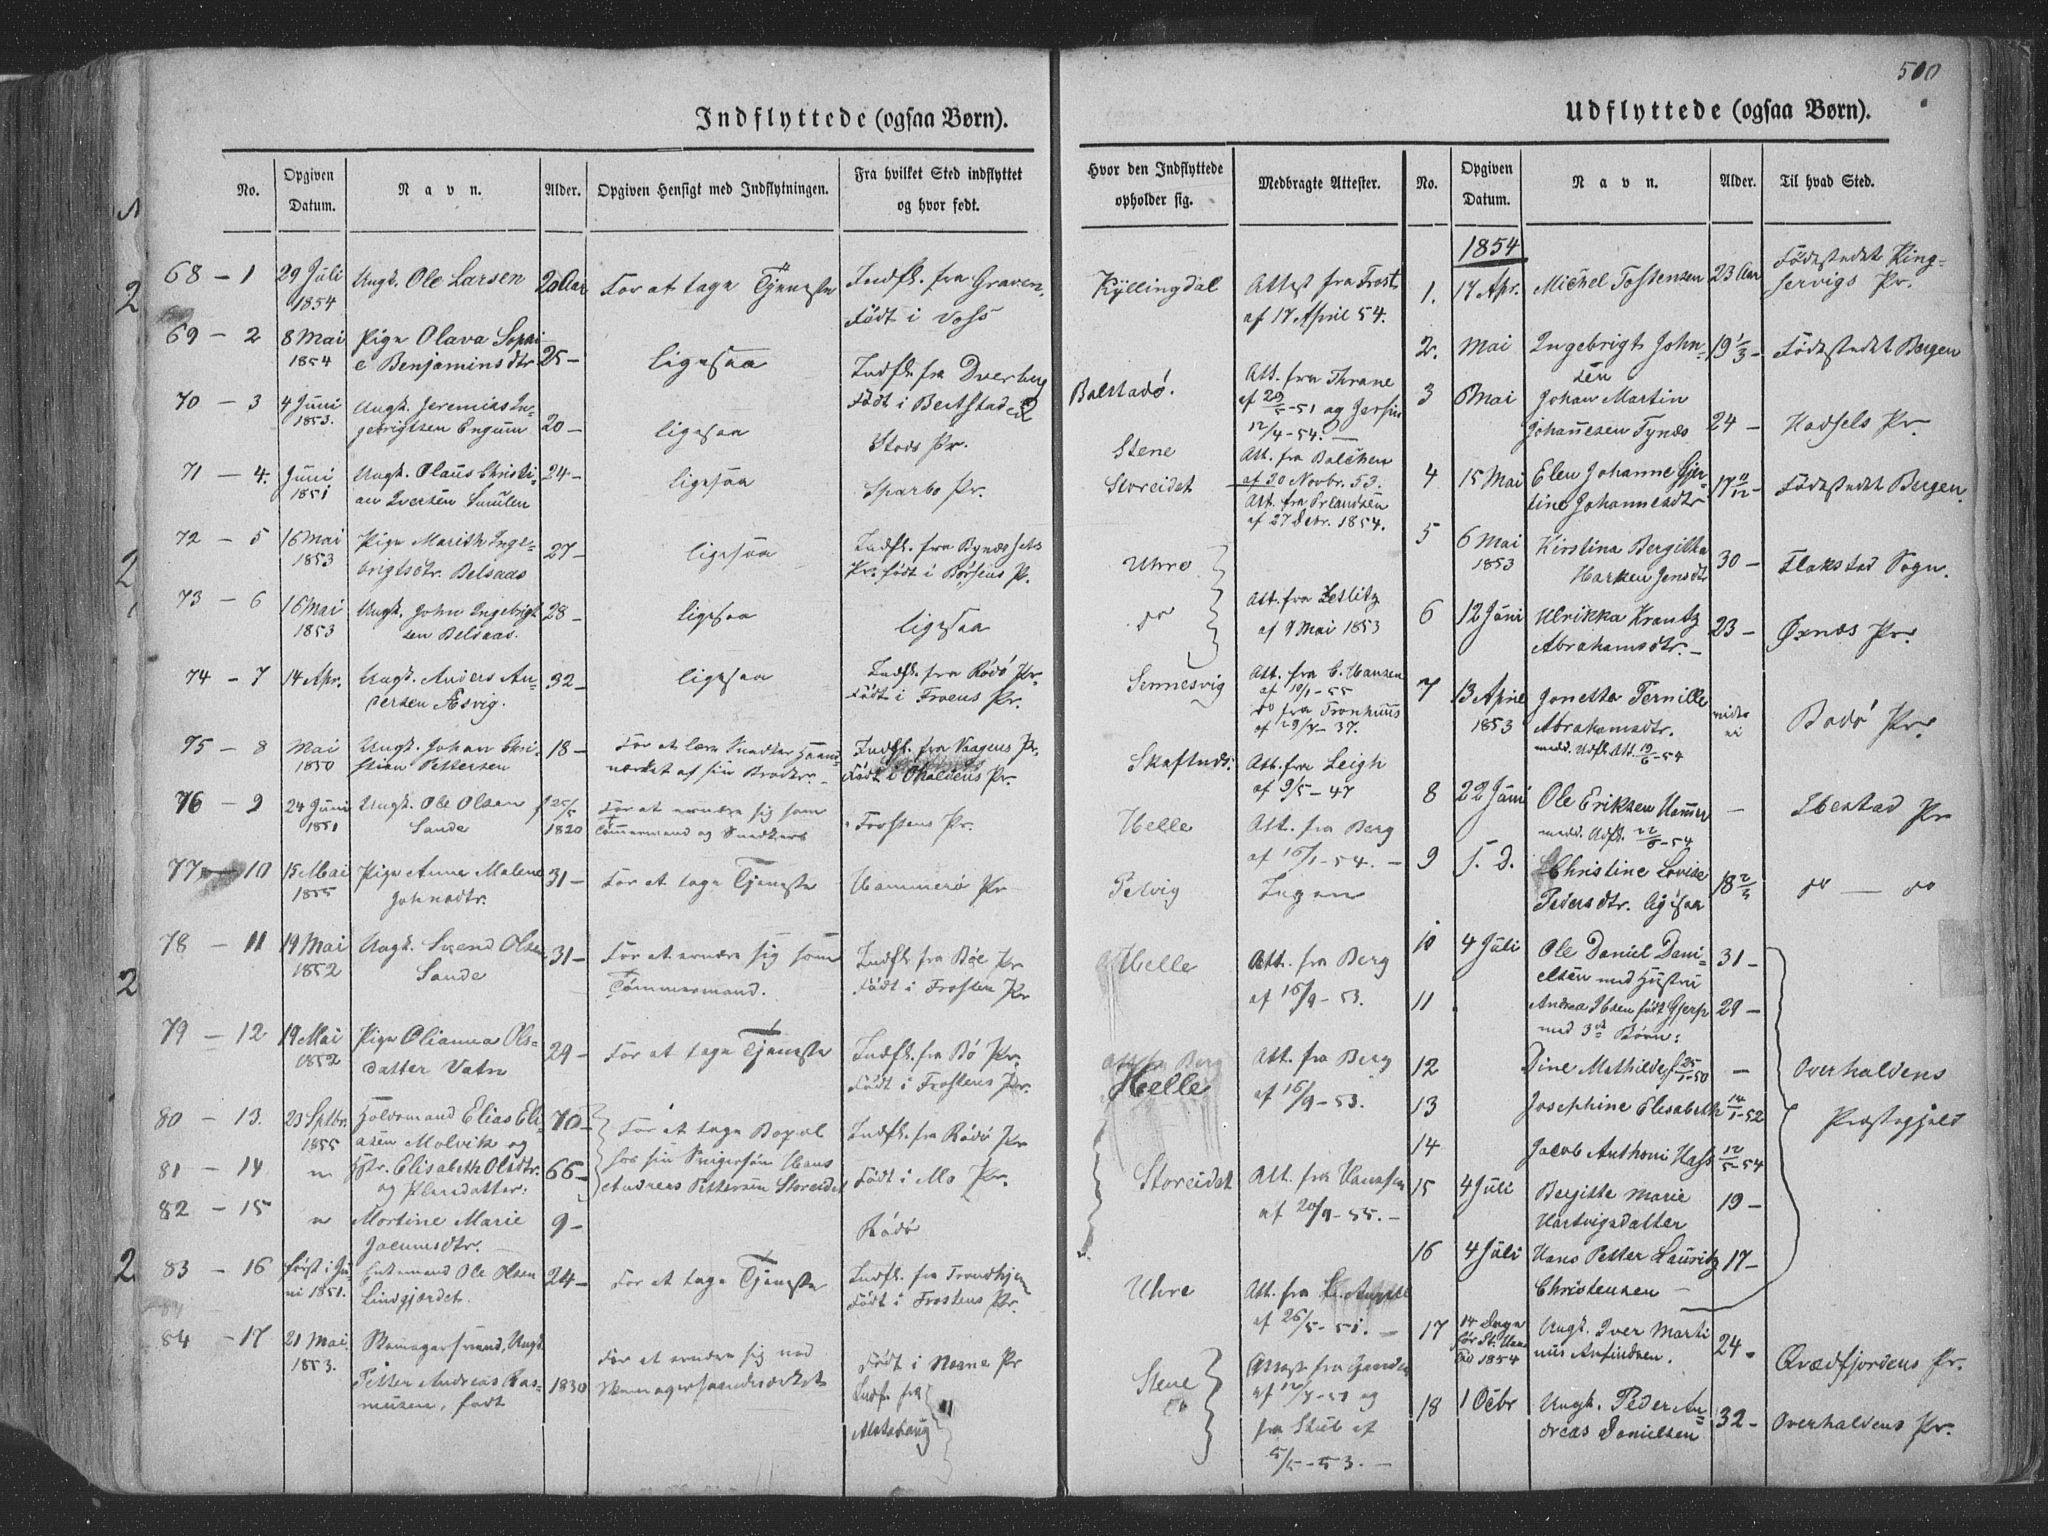 500
Indflyttede (ogsaa Børn).
No.
Opgiven Datum.
Navn.
Alder.
Opgiven Hensigt med Indflytningen.
Fra hvilket Sted indflyttet og hvor født.
Hvor den Indflyttede opholder sig.
Medbragte Attester.
68 - 1 29 Juli Ungk. Ole Larsen 20 Aar For at tage Tjeneste Indfl. fra Graven, Kyllingdal Attest fra
1854 Født i Voss af 17 April 54.
69 - 2 8 Mai Pige Olava Sophi-
1854 e Benjaminsdtr 25 - ligesaa Indfl. fra Dverberg Balstadö. Att. fra Thrane
Født i
70 - 3 4 Juni Ungk. Jeremias In-
1853. gebrigtsen 20 - ligesaa Stods Pr. Stene 12/4-54.
71 - 4. Juni Ungk. Olaus Christi- 24 - ligesaa Sparbo Pr. Storeidet af 30 Novbr. 53.
1851 an Iversen af 27 Decbr. 1854.
72 - 5 16 Mai Pige Marith Inge- 27 - ligesaa Indfl. fra Bynæssets Uhre
1853 brigtsdtr. Belsaas Pr. født i Börsens Pr.
73 - 6 16 Mai Ungk. John Ingebrigt 28 - ligesaa ligesaa do Att. fra Zetlitz
1853 sen Belsaas. af 9 Mai 1853
74 - 7 14 Apr. Ungk. Anders An- 32 - ligesaa Indfl. fra Rödö Pr. Sennesvig Att. fra C. Hansen
dersen Æsvig. Født i Froens Pr. af 10/1-55
do fra
75 - 8 Mai Ungk. Johan Chri- 18 - For at lære Snedker Haand- Indfl. fra Vaagens Pr. Att. fra Leigh
1850 stian Pettersen værket af sin Broder. Født i Pr. af 9/5-47
76 - 9 24 Juni Ungk. Ole Olsen f. 25/5 For at ernære sig som Frostens Pr. Helle Att. fra Berg
1851 Sande 1820 Tömmermand og Snedker af 16/1-54.
77 - 10 15 Mai Pige Anne Malene 31 - For at tage Tjeneste Hammerö Pr Petvig Ingen
1855 Johnsdtr.
78 - 11 19 Mai Ungk. Svend Olsen 31 - For at ernære sig som Indfl. fra Böe Pr Helle Att. fra Berg
1852 Sande Tömmermand. Født i Frosten Pr af 16/9-53.
79 - 12 19 Mai Pige Olianna Ols- 29 - For at tage Tjeneste Indfl. fra Bö Pr. Helle Att. fra Berg
1852 datter Vatn Født i Frostens Pr. af 16/9-53.
80 - 13. 23 Sptbr. Elias Eli- 70 - For at tage Bopæl Indfl. fra Rödö Pr
1855 asen Molvik og
81 - 14 " Elisabeth Olsdtr. 66 - hos sin Svigersön Hans Født i Mo Pr. Storeidet Att. fra Hanssen
og Pleiedatter: Andreas Pettersen Storeidet af 20/9-55.
82 - 15 " Mortine Marie 9 - Rödö
83 - 16 först i Ju- Enkemand Ole Olsen 24 - For at tage Tjeneste Indfl. fra Trondhjem Uhre Att. fra
ni 1851. Lindgjærdet. Født i Frostens Pr. af 26/5-51.
84 - 17 21 Mai Ungk. For at ernære sig ved Født i Nærne Pr Stene Attest fra
1853. Petter Andreas Ras- 1830 Indfl. fra og
musen, født Alstahaug fra Stub af
5/5-53.
Udflyttede (ogsaa Børn).
No.
Opgiven Datum.
Navn.
Alder.
Til hvad Sted.
1854
1. 17 Apr. Michel Tostensen 23 Aar Födestedet King-
servigs Pr.
2. Mai Ingebrigt John- 19 1/3 - Födestedet Bergen
sen
3 Mai Johan Martin
Johannesen Tynæs 24 - Hadsels Pr.
4 15 Mai Elen Johanne Gjer- 17 - Födestedet Bergen.
tine Johannesdtr
5 6 Mai Kirstina Bergitha 30 - Flakstad Sogn.
1853 Jensdtr
6 12 Juni Ulrikka Krantz 23 - Öxnæs Pr.
Abrahamsdtr.
7 13 April Jonetta Pernille Bodö Pr.
1853 Abrahamsdtr.
medd. Udfl. Att. 19/6-54
8 22 Juni Ole Eriksen - Ibestad Pr
medd. Udfl. 22/6-54
9 s. D. Christine Lovise 18 2/3 do - do
Pedersdtr.
10 4 Juli Ole Daniel Dani- 31 -
elsen med Hustru
11 Andrea Ibsen født Gjerp 29 -
med 3de Börn:
12 Dine Mathilde f. 25/1-50 - Overhaldens
13 Josephine Elisabeth 14/1-52 Præstegjeld
14 Jacob Anthoni 12/5-54
15 4 Juli Bergitte Marie 19 -
Hartvigsdatter
16 4 Juli Hans Petter Lauritz 17 -
Christensen
17 14 Dage Ungk. Iver Marti 24 - Qvædfjordens Pr.
för St. Hans nus Arfindsen.
Tid 1854
18 1 Octbr Ungk. Peder An- 32 - Overhaldens Pr.
dreas Danielsen